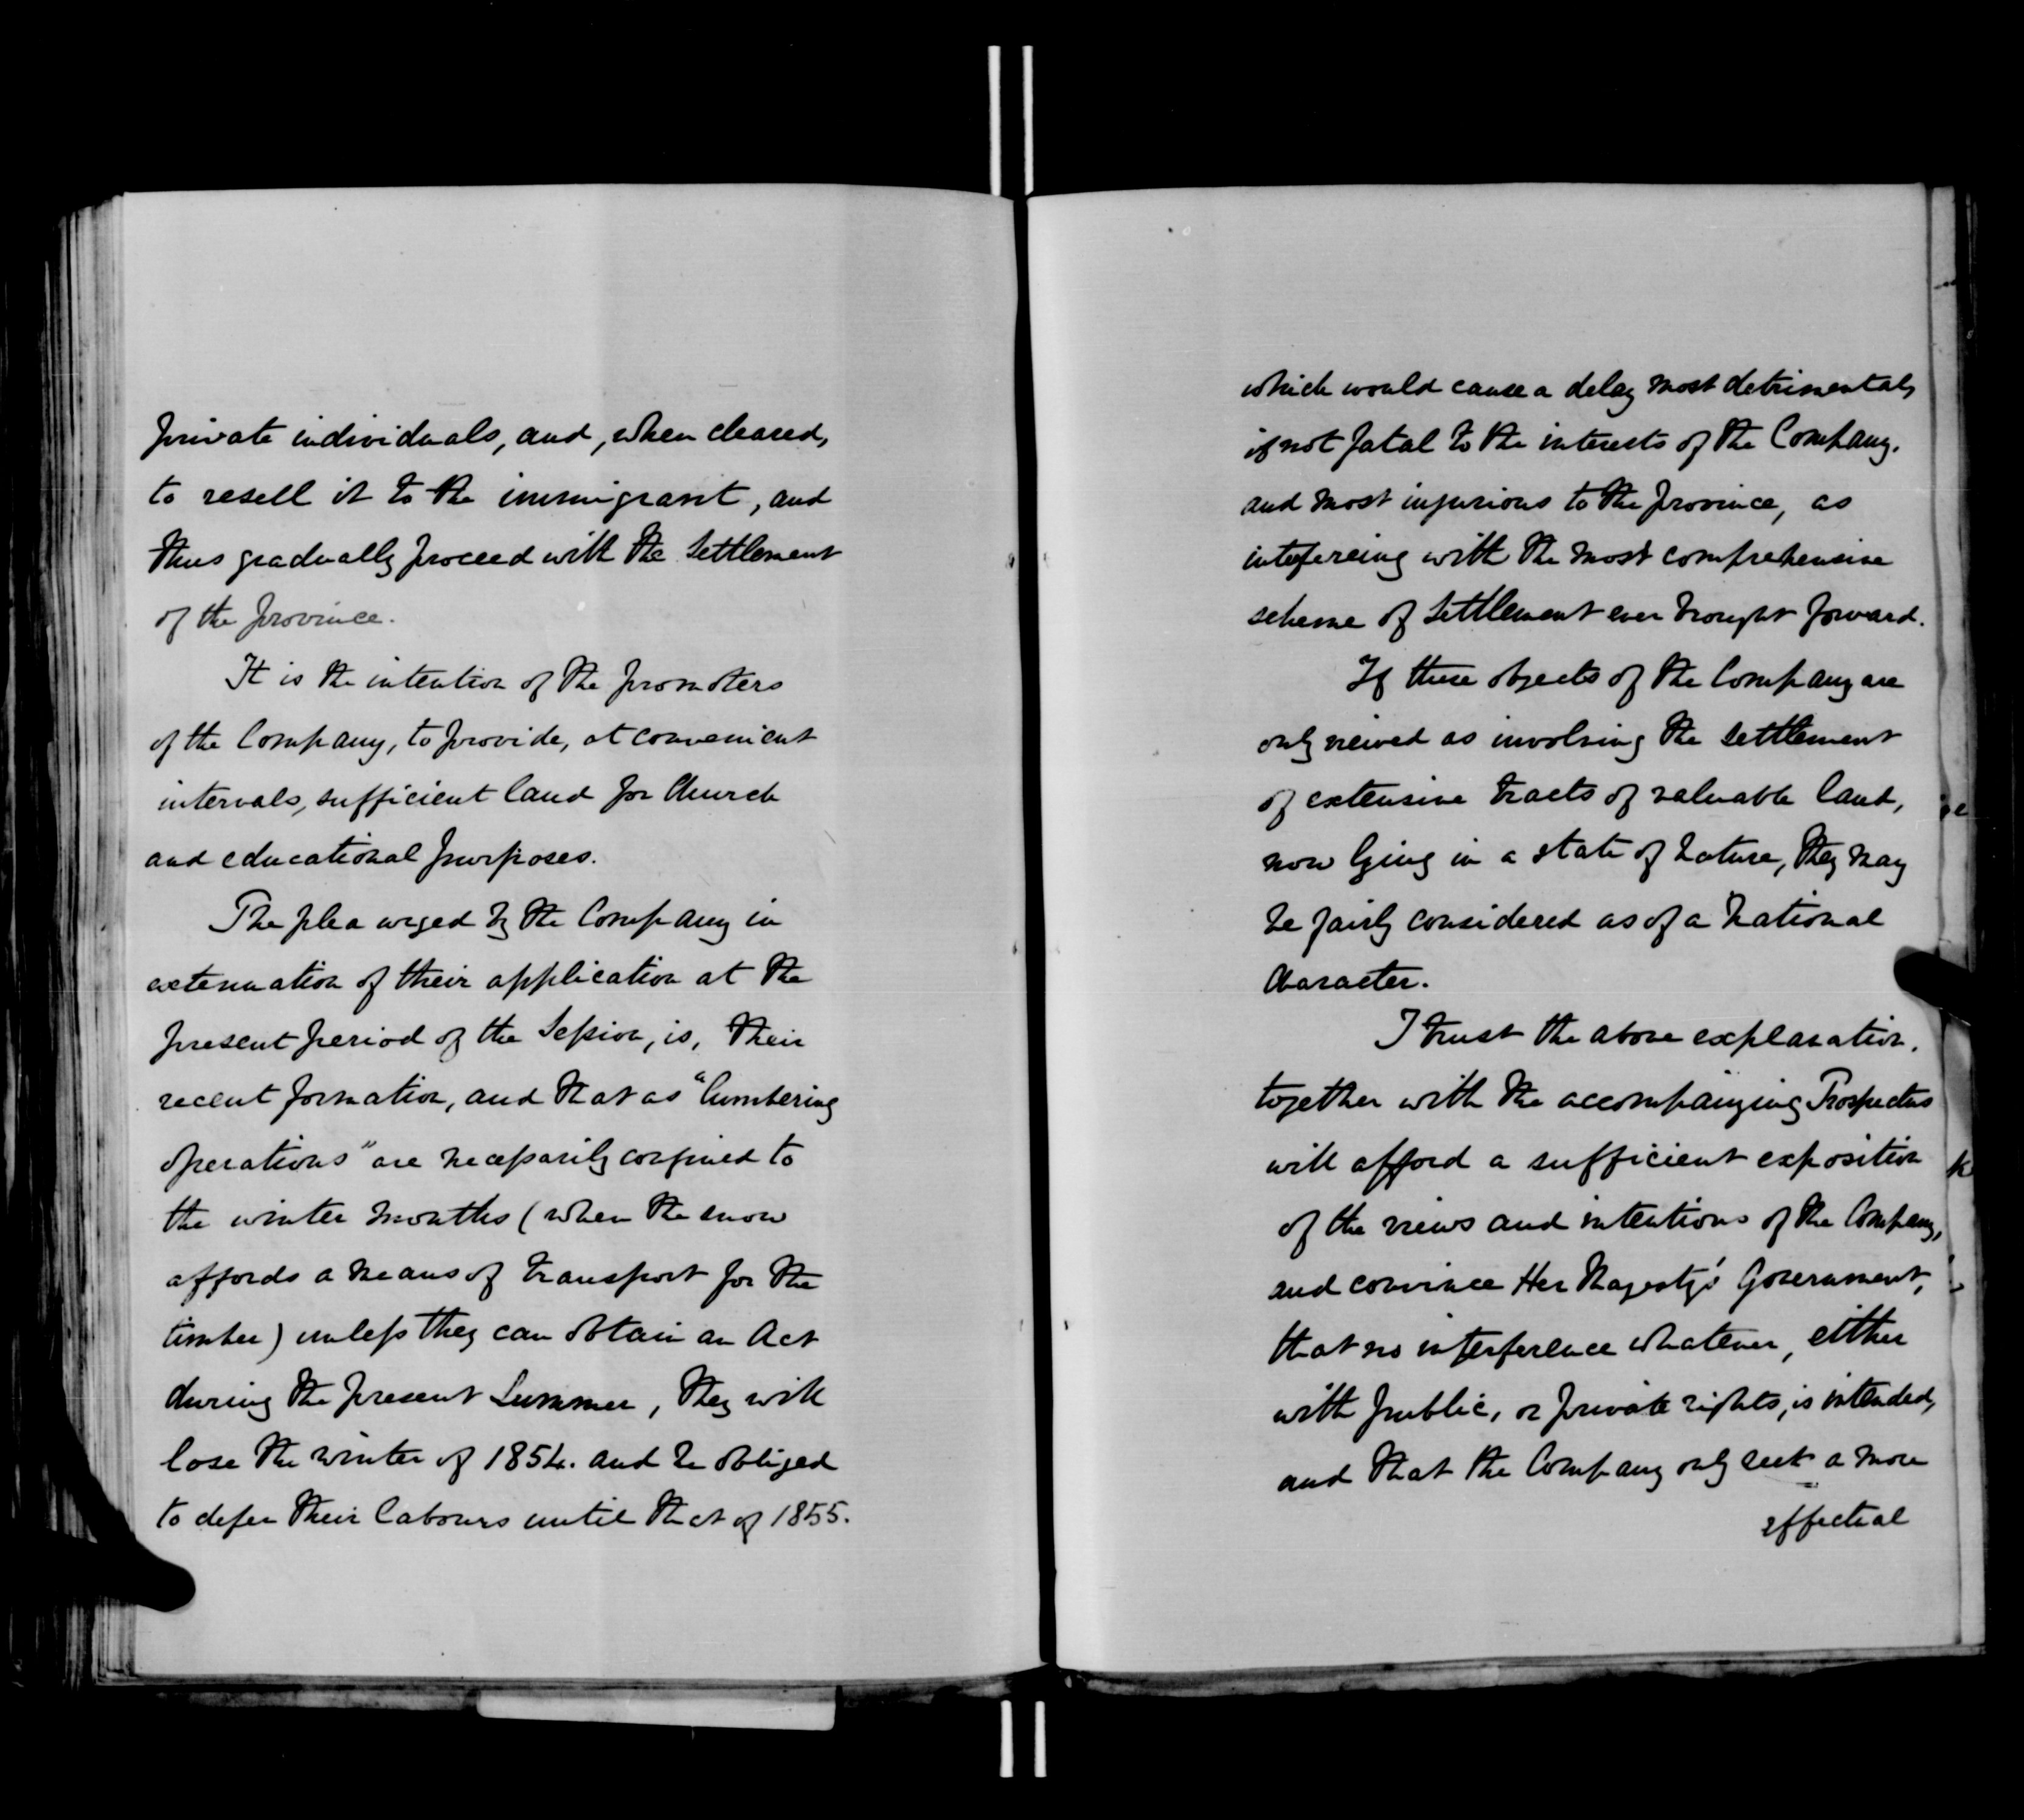 private individuals, and, when cleared,
to resell it to the immigrant, and
thus gradually proceed with the Settlement
of the province.
It is the intention of the promoters
of the Company, to provide, at convenient
intervals, sufficient land for Church
and educational purposes.
The plea urged by the Company in
extenuation of their application at the
present period of the Session, is, their
recent formation, and that as "lumbering
operations" are necessarily confined to
the winter months (when the snow
affords a means of transport for the
timber) unless they can obtain an Act
during the present Summer, they will
lose the winter of 1854. and be obliged
to defer their labours until that of 1855.
which would cause a delay most detrimental,
if not fatal to the interests of the Company,
and most injurious to the province, as
interfereing with the most comprehensive
scheme of Settlement ever brought forward.
If these objects of the Company are
only viewed as involving the settlement
of extensive tracts of valuable land,
now lying in a state of nature, they may
be fairly considered as of a national
Character.
I trust the above explanation,
together with the accompanying Prospectus
will afford a sufficient exposition
of the views and intentions of the Company,
and convince Her Majesty's Government,
that no interference whatever, either
with public, or private rights, is intended,
and that the Company only seek a more
effectual